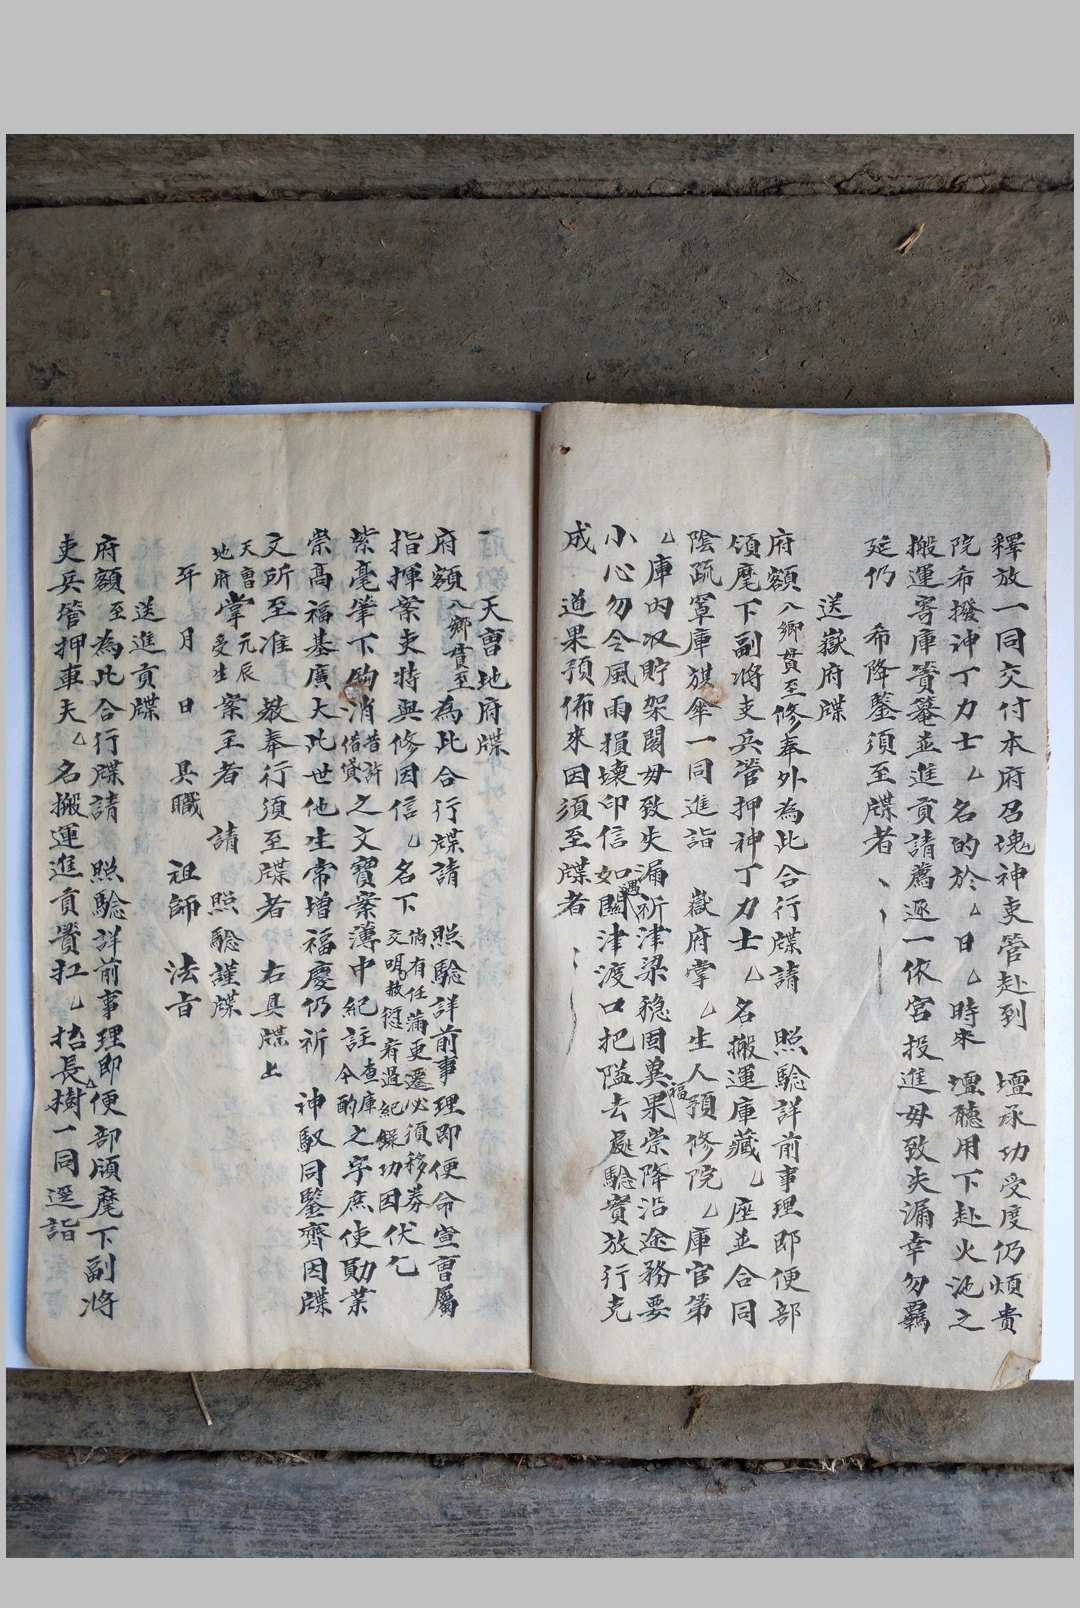 釋放一同交付本府召塊神吏管赴到 壇承功受度仍煩貴
院希撥神丁力士厶名的於厶日厶時來 壇聽用下赴火池之
搬運寄庫簣菴並進貢請薦逐一依宮投進毋致失漏幸勿羈
延仍 希降鑒須至牒者
送嶽府牒
府額八鄉貫至修奉外為此合行牒請 照驗詳前事理即便部
領麾下副將吏兵管押神丁力士厶名搬運庫藏厶座並合同
陰疏罩庫旗傘一同進詣 嶽府掌厶生人預修院厶庫官第
厶庫內収貯架閣毋致失漏祈津梁穩固奠果福崇降沿途務要
小心勿令風雨損壞印信如遇關津渡口把隘去處驗實放行克
成 道果預佈來因須至牒者
一 天曹地府牒
府額八鄉貫至為此合行牒請 照驗詳前事理即便命宣曹屬
指揮案吏特與修因信厶名下倘有任蒲更遷必須移券交明赦愆宥過紀錄功因伏乞
紫毫筆下鈎消昔許借貸之文寶案薄中紀註查庫今酌之字庶使勛業
崇高福基廣大此世他生常增福慶仍祈 神馭同鑒齊因牒
文所至准 教奉行須至牒者 右具牒上
天曹地府掌元辰受生案主者 請 照驗謹牒
年 月 日 具職 祖師 法旨
送進貢牒
府額至為此合行牒請 照驗詳前事理即便部領麾下副將
吏兵管押車夫厶名搬運進貢貴扛厶抬長樹一同逕詣